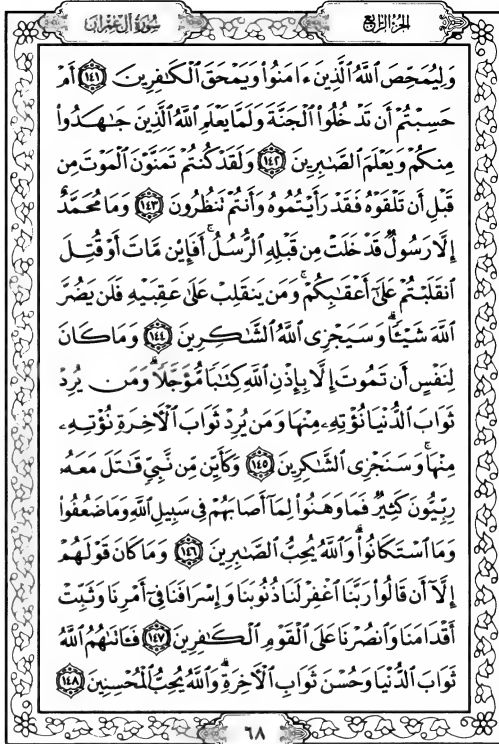 سُورَةُ آلِ عِمْرَانَ
الجزء الرابع
وَلِيُمَحِّصَ ٱللَّهُ ٱلَّذِينَ ءَامَنُوا۟ وَيَمْحَقَ ٱلْكَـٰفِرِينَ ١٤١ أَمْ
حَسِبْتُمْ أَن تَدْخُلُوا۟ ٱلْجَنَّةَ وَلَمَّا يَعْلَمِ ٱللَّهُ ٱلَّذِينَ جَـٰهَدُوا۟
مِنكُمْ وَيَعْلَمَ ٱلصَّـٰبِرِينَ ١٤٢ وَلَقَدْ كُنتُمْ تَمَنَّوْنَ ٱلْمَوْتَ مِن
قَبْلِ أَن تَلْقَوْهُ فَقَدْ رَأَيْتُمُوهُ وَأَنتُمْ تَنظُرُونَ ١٤٣ وَمَا مُحَمَّدٌ
إِلَّا رَسُولٌ قَدْ خَلَتْ مِن قَبْلِهِ ٱلرُّسُلُ ۚ أَفَإِي۟ن مَّاتَ أَوْ قُتِلَ
ٱنقَلَبْتُمْ عَلَىٰٓ أَعْقَـٰبِكُمْ ۚ وَمَن يَنقَلِبْ عَلَىٰ عَقِبَيْهِ فَلَن يَضُرَّ
ٱللَّهَ شَيْـًٔا ۗ وَسَيَجْزِى ٱللَّهُ ٱلشَّـٰكِرِينَ ١٤٤ وَمَا كَانَ
لِنَفْسٍ أَن تَمُوتَ إِلَّا بِإِذْنِ ٱللَّهِ كِتَـٰبًا مُّؤَجَّلًا ۗ وَمَن يُرِدْ
ثَوَابَ ٱلدُّنْيَا نُؤْتِهِۦ مِنْهَا وَمَن يُرِدْ ثَوَابَ ٱلْـَٔاخِرَةِ نُؤْتِهِۦ
مِنْهَا ۚ وَسَنَجْزِى ٱلشَّـٰكِرِينَ ١٤٥ وَكَأَيِّن مِّن نَّبِىٍّ قَـٰتَلَ مَعَهُۥ
رِبِّيُّونَ كَثِيرٌ فَمَا وَهَنُوا۟ لِمَآ أَصَابَهُمْ فِى سَبِيلِ ٱللَّهِ وَمَا ضَعُفُوا۟
وَمَا ٱسْتَكَانُوا۟ ۗ وَٱللَّهُ يُحِبُّ ٱلصَّـٰبِرِينَ ١٤٦ وَمَا كَانَ قَوْلَهُمْ
إِلَّآ أَن قَالُوا۟ رَبَّنَا ٱغْفِرْ لَنَا ذُنُوبَنَا وَإِسْرَافَنَا فِىٓ أَمْرِنَا وَثَبِّتْ
أَقْدَامَنَا وَٱنصُرْنَا عَلَى ٱلْقَوْمِ ٱلْكَـٰفِرِينَ ١٤٧ فَـَٔاتَىٰهُمُ ٱللَّهُ
ثَوَابَ ٱلدُّنْيَا وَحُسْنَ ثَوَابِ ٱلْـَٔاخِرَةِ ۗ وَٱللَّهُ يُحِبُّ ٱلْمُحْسِنِينَ ١٤٨
٦٨